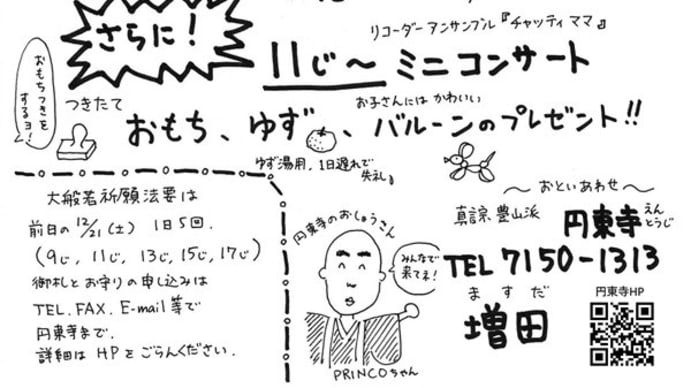 さらに!
リコーダーアンサンブル『チャッティママ』
11じ〜ミニコンサート
おもちつきをするヨ!
つきたて
お子さんには かわいい
おもち、ゆず、バルーンのプレゼント!!
ゆず湯用、1日遅れで
失礼。
大般若祈願法要は
前日の12/21(土) 1日5回.
(9じ, 11じ, 13じ, 15じ, 17じ)
御札とお守りの申し込みは
TEL. FAX. E-mail 等で
円東寺まで.
詳細は HPをごらんください.
円東寺のおしょうさん
みんなで
来てネ!
PRINCOちゃん
〜おといあわせ〜
豊山派 円東寺
えん
とうじ
TEL 7150-1313
ますだ
増田
円東寺HP